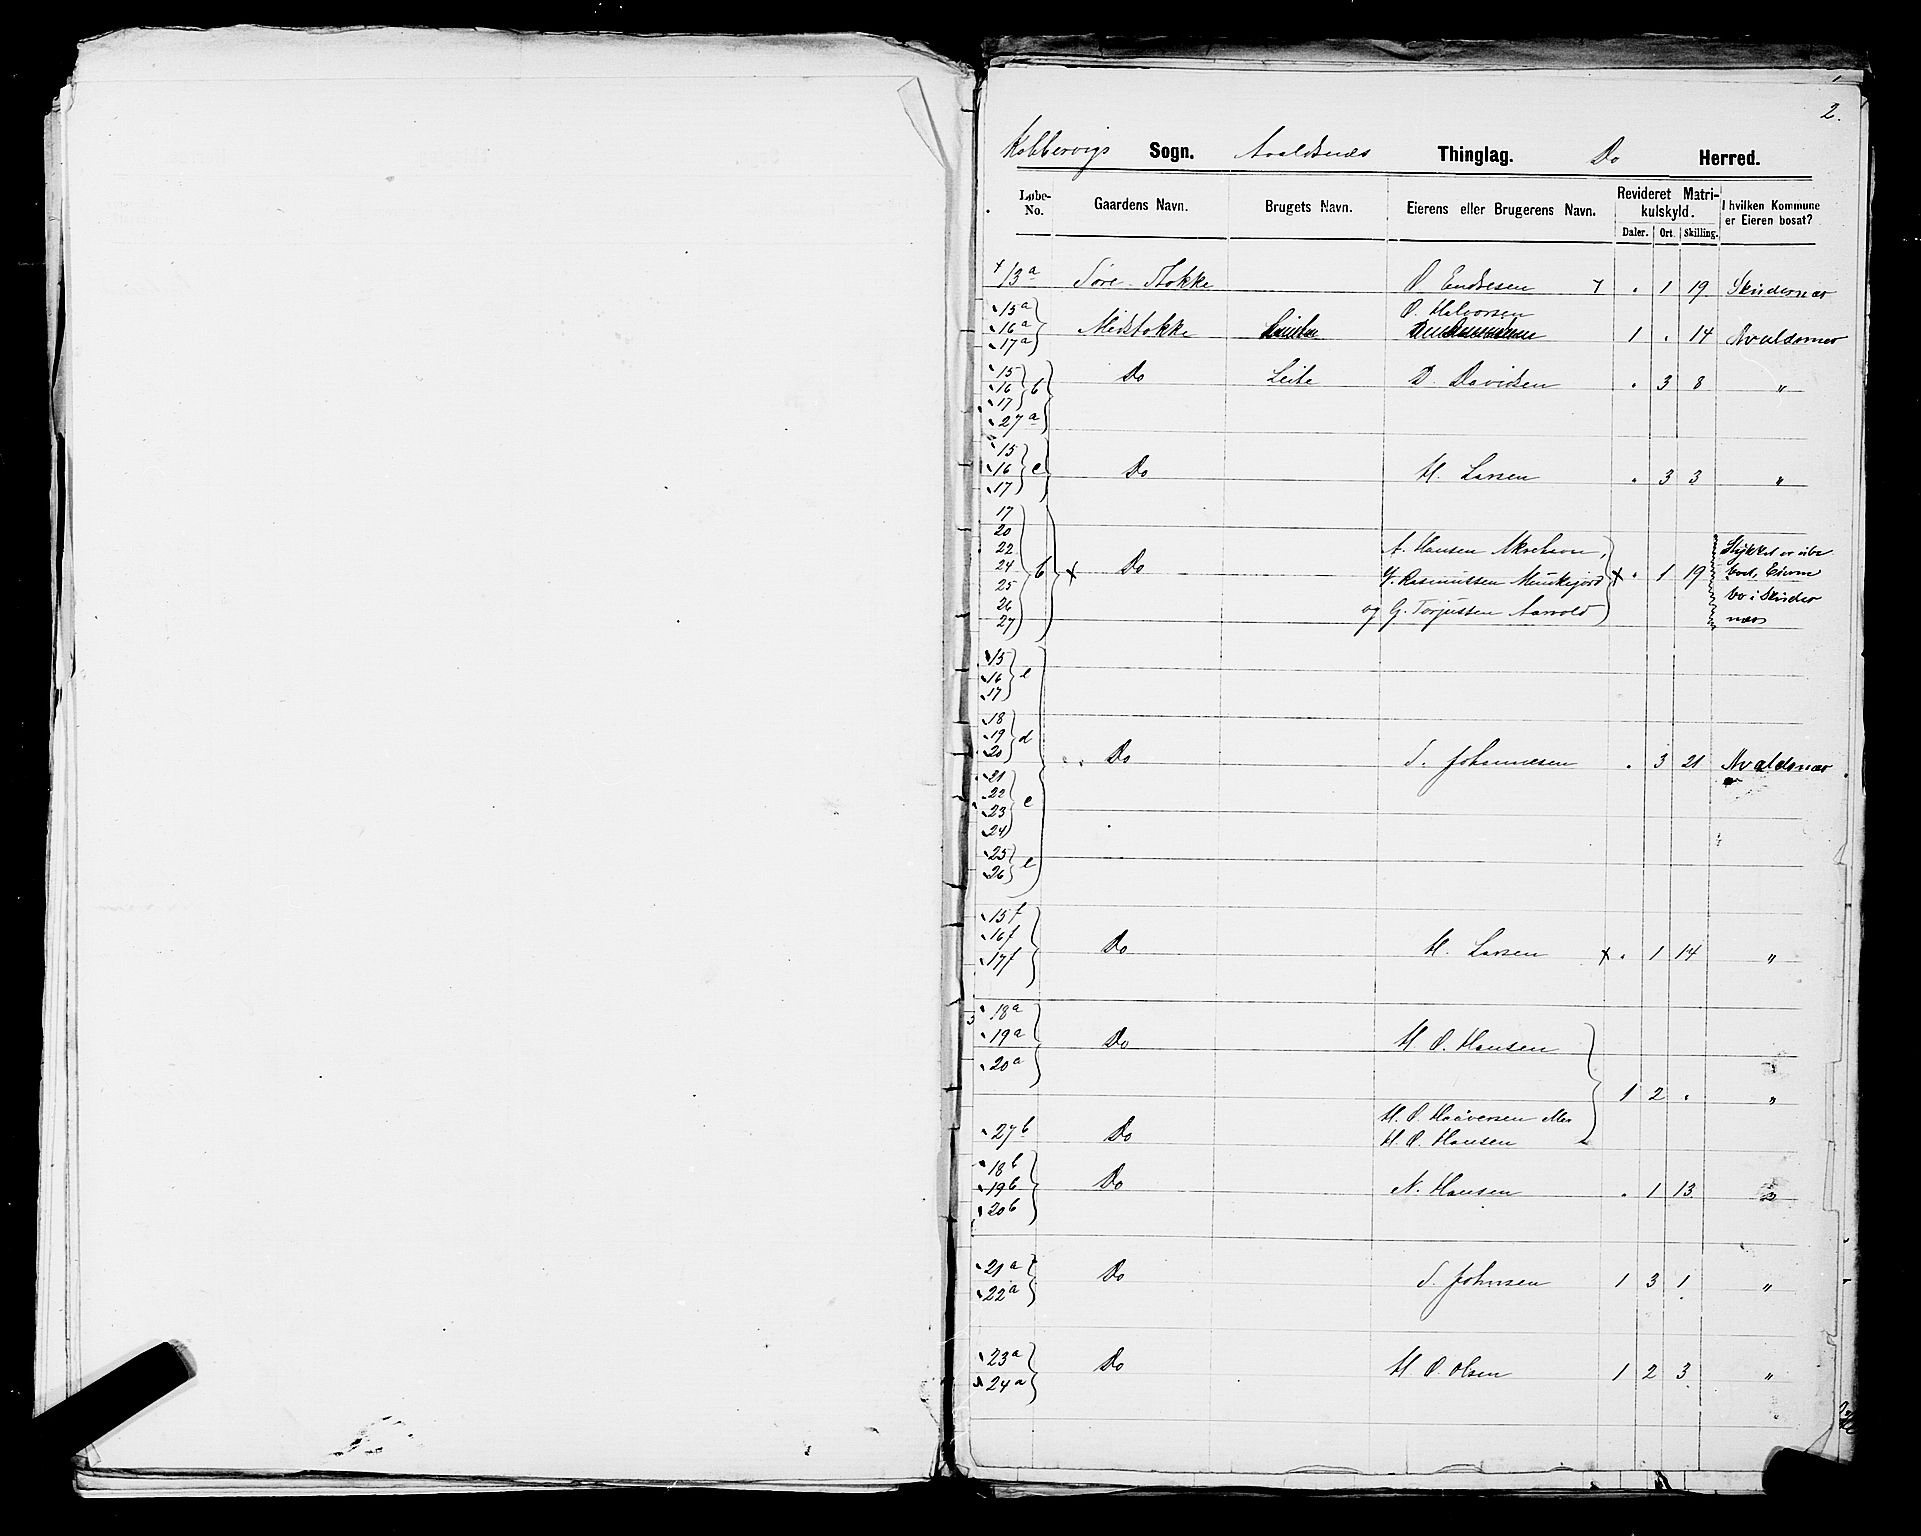 2.
Kobbervigs Sogn. Avaldsnæs Thinglag. Do Herred.
Løbe-No. Gaardens Navn. Brugets Navn. Eierens eller Brugerens Navn. Revideret Matrikulskyld. I hvilken Kommune er Eieren bosat?
Daler. Ort. Skilling.
13a Søre Stokke O. Endresen " 1 19 Skudesnæs
15a O. Halvorsen
16a Midstokke 1 " 14 Avaldsnæs
17a
15
16 b Do Leite D. Davidsen " 3 8 "
17
27a
15
16 c Do H. Larsen " 3 3 "
17
17
20
22 A. Hansen Akrehavn, Stykket er ube
24 b x Do x " 1 19 boet, Eierne
25 Rasmussen Munkejord bo i Skudes
26 og G. Torjussen Aarvold næs
27
15
16 e
17
18
19 d
20 Do S. Johannesen " 3 21 Avaldsnæs
21
22 c
23
24
25 e
26
15f
16f Do H. Larsen x " 1 14 "
17f
18a
19a Do H. O. Hansen
20a
1 2 " "
H. O. Halversen eller
27b Do H. O. Hansen
18b
19b Do N. Hansen " 1 13 "
20b
21a Do S. Johnsen 1 3 1 "
22a
23a Do H. O. Olsen 1 2 3 "
24a